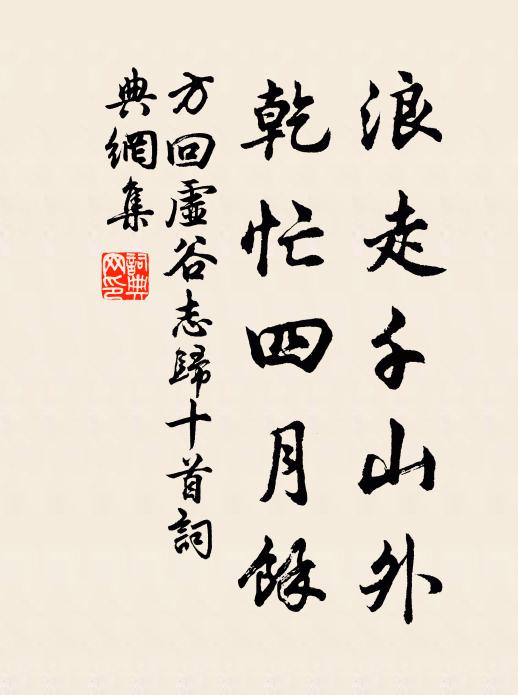 浪走千山外
乾忙四月餘
方回虛谷志歸十首詞
典網集
詞典
网印